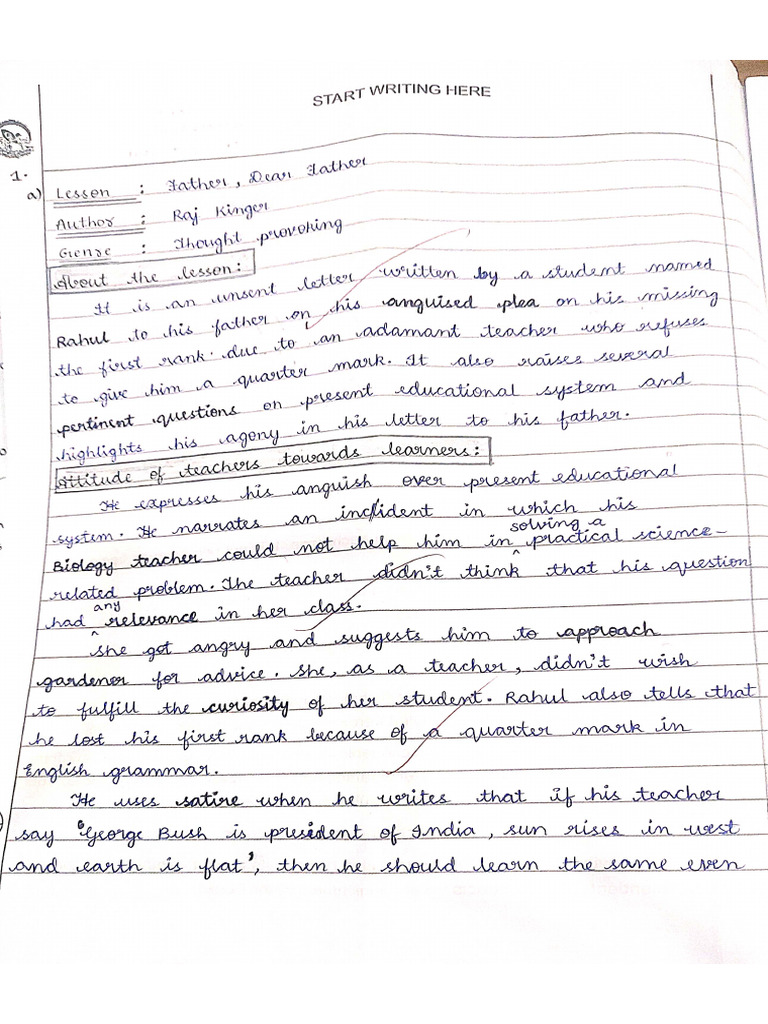 START WRITING HERE
1.
a) Lesson : Father, Dear Father
Author : Raj Kinger
Genre : Thought provoking
About the lesson:
It is an unsent letter written by a student named
Rahul to his father on his anguised plea on his missing
the first rank. due to an adamant teacher who refuses
to give him a quarter mark. It also raises several
pertinent questions on present educational system and
highlights his agony in his letter to his father.
Attitude of teachers towards learners:
He expresses his anguish over present educational
system. He narrates an incident in which his
Biology teacher could not help him in solving a practical science-
related problem. The teacher didn't think that his question
had any relevance in her class.
She got angry and suggests him to approach
gardener for advice. She, as a teacher, didn't wish
to fulfill the curiosity of her student. Rahul also tells that
he lost his first rank because of a quarter mark in
English grammar.
He uses satire when he writes that if his teacher
say 'George Bush is president of India, sun rises in west
and earth is flat', then he should learn the same even